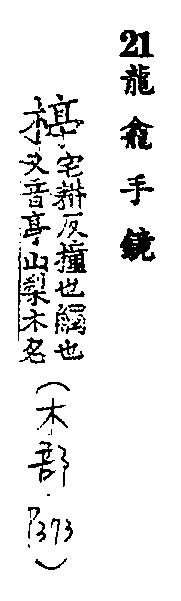 21龍龕手鏡
楟宅耕反撞也觸也
又音亭山梨木名
(木部·P373)